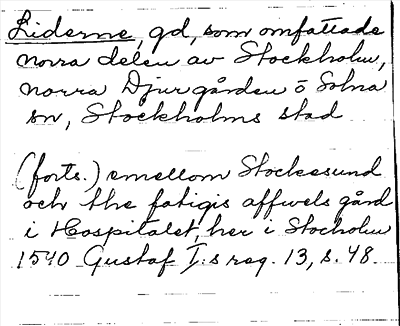 Liderne, gd, som omfattade
norra delen av Stockholm,
norra Djurgården o Solna
sn, Stockholms stad
(forts.) emellom Stockesund
och the fatigis affwels gård
i Hospitalet, her i Stocholm
1540 Gustaf I:s reg. 13, s. 48.